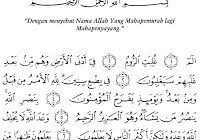 بِسْمِ اللَّهِ الرَّحْمَنِ الرَّحِيمِ
"Dengan menyebut Nama Allah Yang Mahapemurah lagi
Mahapenyayang."
الٓمٓ ﴿١﴾ غُلِبَتِ الرُّومُ ﴿٢﴾ فِي أَدْنَى الْأَرْضِ وَهُم مِّنْ بَعْدِ
غَلَبِهِمْ سَيَغْلِبُونَ ﴿٣﴾ فِي بِضْعِ سِنِينَ لِلَّهِ الْأَمْرُ مِن قَبْلُ
وَمِنْ بَعْدُ وَيَوْمَئِذٍ يَفْرَحُ الْمُؤْمِنُونَ ﴿٤﴾ بِنَصْرِ اللَّهِ
يَنصُرُ مَن يَشَاءُ وَهُوَ الْعَزِيزُ الرَّحِيمُ ﴿٥﴾ وَعْدَ اللَّهِ لَا
يُخْلِفُ اللَّهُ وَعْدَهُ وَلَكِنَّ أَكْثَرَ النَّاسِ لَا يَعْلَمُونَ